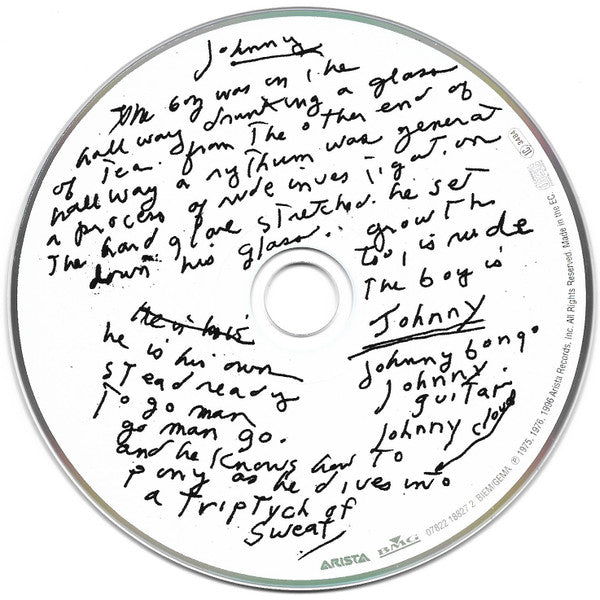 Johnny
The boy was in the
hallway drinking a glass
of Tea. from The other end of
hallway a rythum was generat
a process of nude inves tigation
The hand glove stretched. he set
down his glass.. growth
too, is nude
The boy is
Johnny
Johnny bongo
Johnny
guitar
Johnny cloud
He is his
he is his own
stead ready
To go man
go man go.
and he Knows how To
Pony as he dives into
a Triptych of
sweat
ARISTA BMG 07822 18827 2 BIEM/GEMA ℗ 1975, 1976, 1996 Arista Records, Inc. All Rights Reserved. Made in the EC.
LC 3484